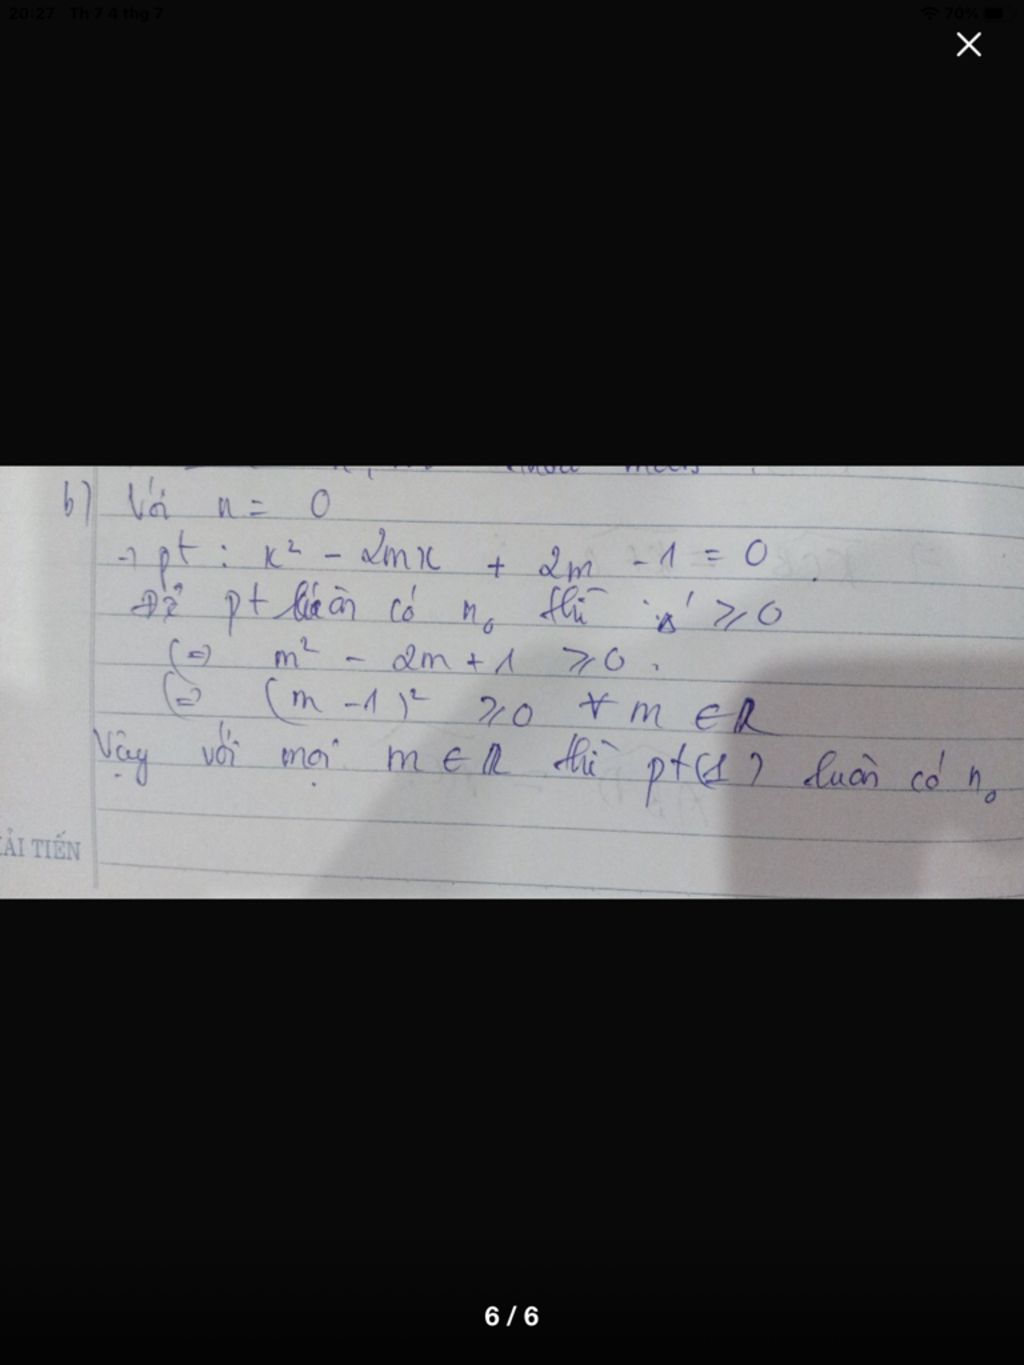 20:27 Th 7 4 thg 7
70%
b) Với n = 0
→ pt : x² - 2mx + 2m - 1 = 0.
Để pt luôn có n₀ thì Δ' ≥ 0
(=) m² - 2m + 1 ≥ 0.
(=) (m - 1)² ≥ 0 ∀ m ∈ R
Vậy với mọi m ∈ R thì pt(1) luôn có n₀
ẢI TIẾN
6 / 6